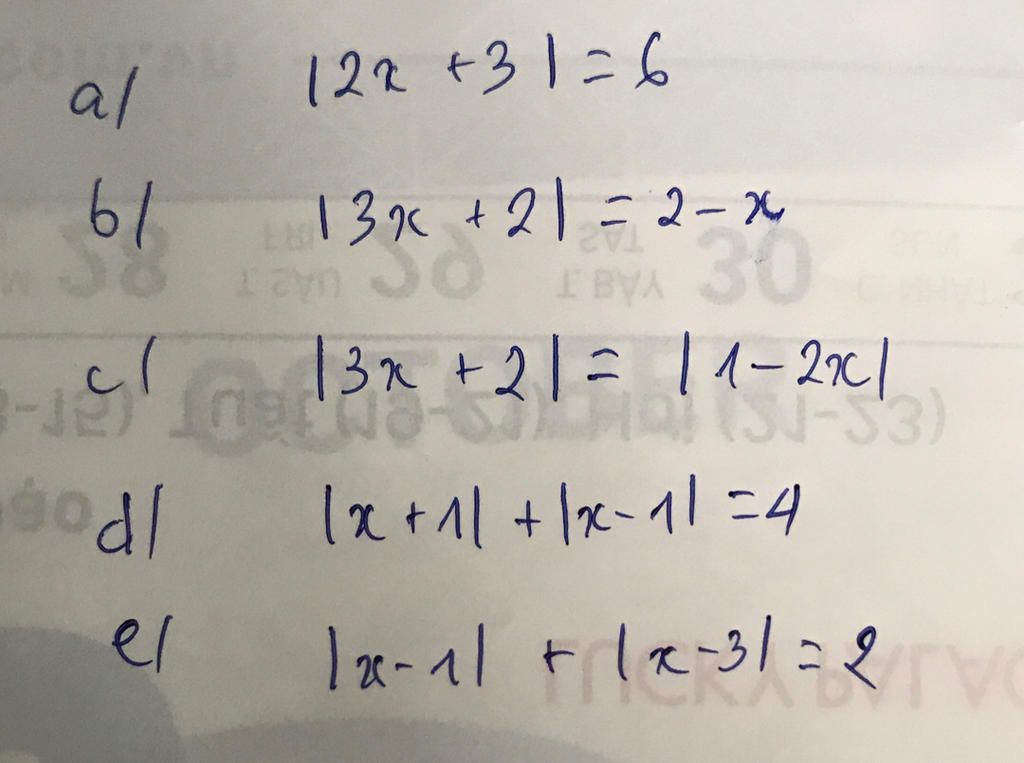 a/ |2x + 3| = 6
b/ |3x + 2| = 2 - x
c/ |3x + 2| = |1 - 2x|
d/ |x + 1| + |x - 1| = 4
e/ |x - 1| + |x - 3| = 2